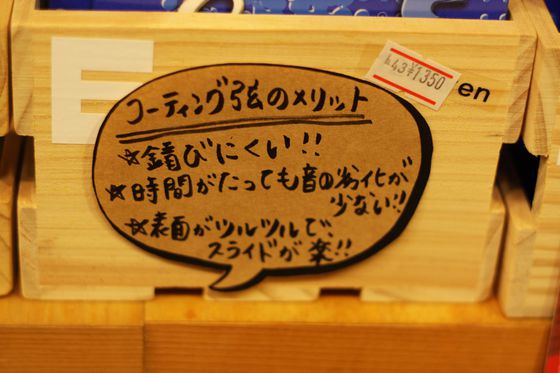 コーティング弦のメリット
☆錆びにくい!!
☆時間がたっても音の劣化が
少ない!!
☆表面がツルツルで、
スライドが楽!!
¥1350
en